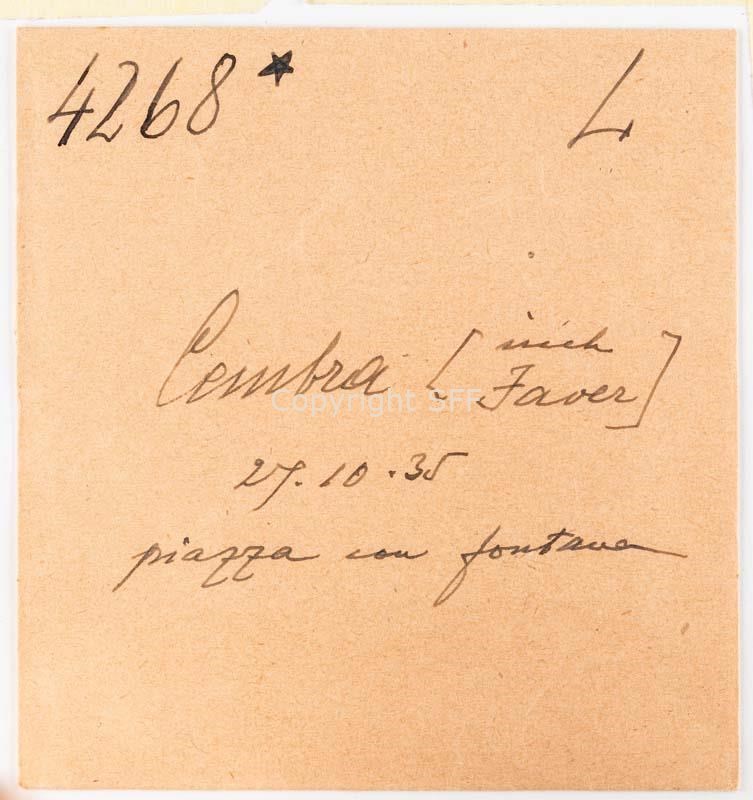 4268* L
Cembra [nich
Faver]
Copyright SFF
27.10.35
piazza con fontana